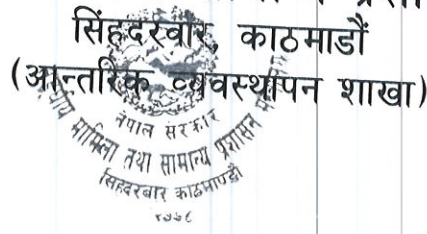 सिंहदरवार, काठमाडौं
(आन्तरिक व्यवस्थापन शाखा)
नेपाल सरकार
मामिला तथा सामान्य प्रशासन
सिंहदरबार काठमाण्डौ